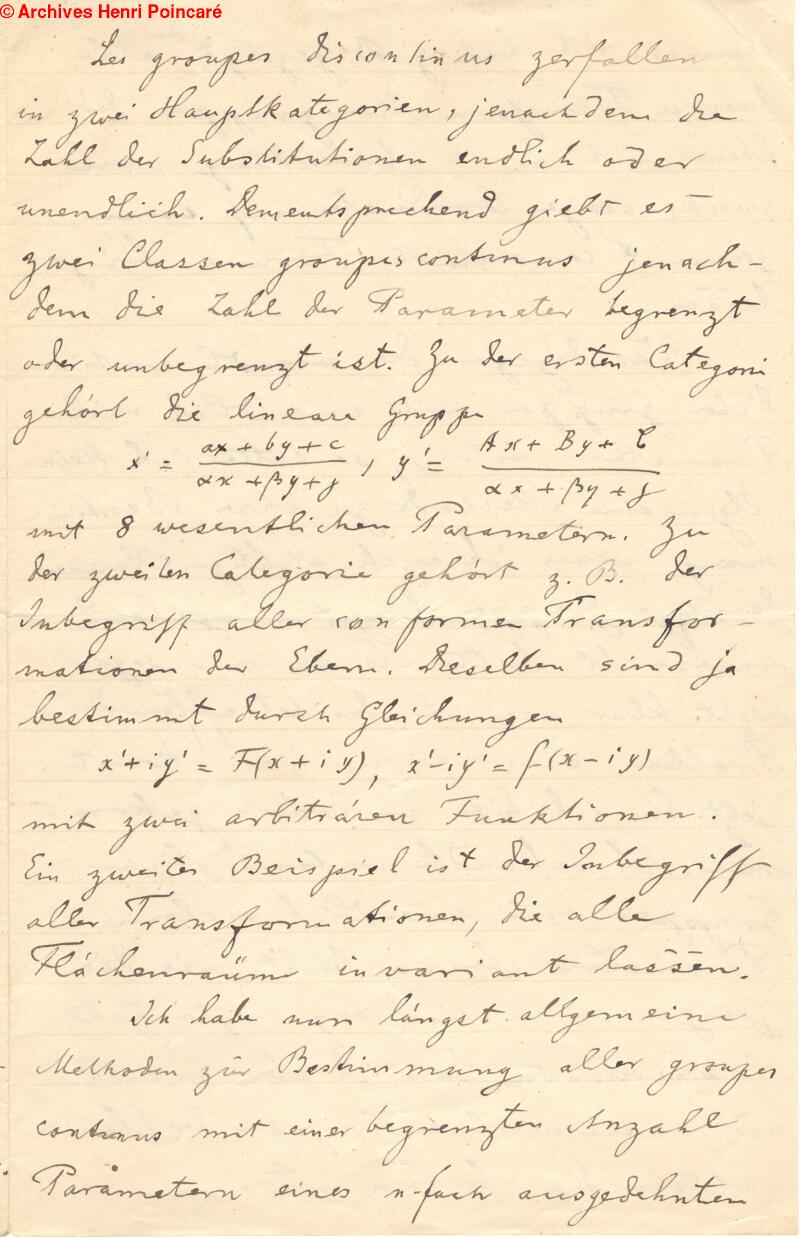 © Archives Henri Poincaré
Les groupes discontinus zerfallen
in zwei Hauptkategorien, jenachdem die
Zahl der Substitutionen endlich oder
unendlich. Dementsprechend giebt es
zwei Classen groupes continus jenach-
dem die Zahl der Parameter begrenzt
oder unbegrenzt ist. Zu der ersten Categorie
gehört die lineare Gruppe
x' = (ax + by + c)/(αx + βy + γ), y' = (Ax + By + C)/(αx + βy + γ)
mit 8 wesentlichen Parametern. Zu
der zweiten Categorie gehört z. B. der
Inbegriff aller conformen Transfor-
mationen der Ebene. Dieselben sind ja
bestimmt durch Gleichungen
x' + iy' = F(x + iy), x' - iy' = f(x - iy)
mit zwei arbiträren Funktionen.
Ein zweites Beispiel ist der Inbegriff
aller Transformationen, die alle
Flächenräume invariant lassen.
Ich habe nun längst allgemeine
Methoden zur Bestimmung aller groupes
continus mit einer begrenzten Anzahl
Parametern eines n-fach ausgedehnten